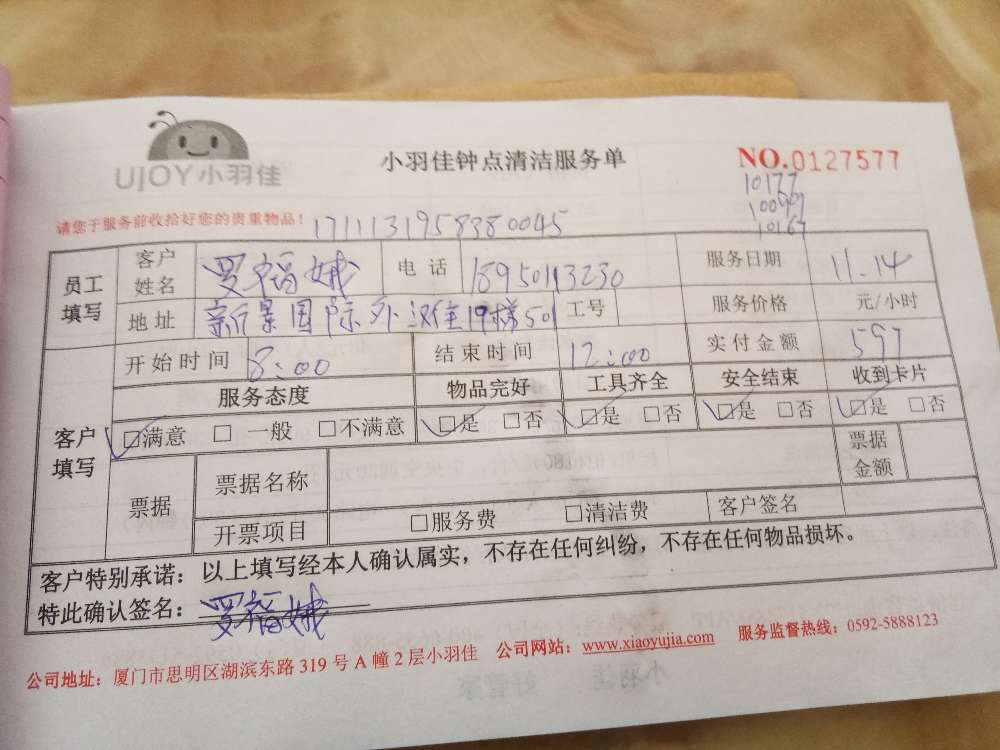 UJOY小羽佳
小羽佳钟点清洁服务单
NO.0127577
10177
10097
10167
请您于服务前收拾好您的贵重物品！
1711131958380045
员工填写 客户姓名 罗福娥 电话 18950113230 服务日期 11.14
地址 新景国际外滩19梯501 工号 服务价格 元/小时
开始时间 8:00 结束时间 12:00 实付金额 597
服务态度 物品完好 工具齐全 安全结束 收到卡片
客户填写 ☑满意 □ 一般 □不满意 ☑是 □否 ☑是 □否 ☑是 □否 ☑是 □否
票据 票据名称 票据金额
开票项目 □服务费 □清洁费 客户签名
客户特别承诺：以上填写经本人确认属实，不存在任何纠纷，不存在任何物品损坏。
特此确认签名：罗福娥
公司地址：厦门市思明区湖滨东路 319 号 A 幢 2 层小羽佳 公司网站：www.xiaoyujia.com 服务监督热线：0592-5888123